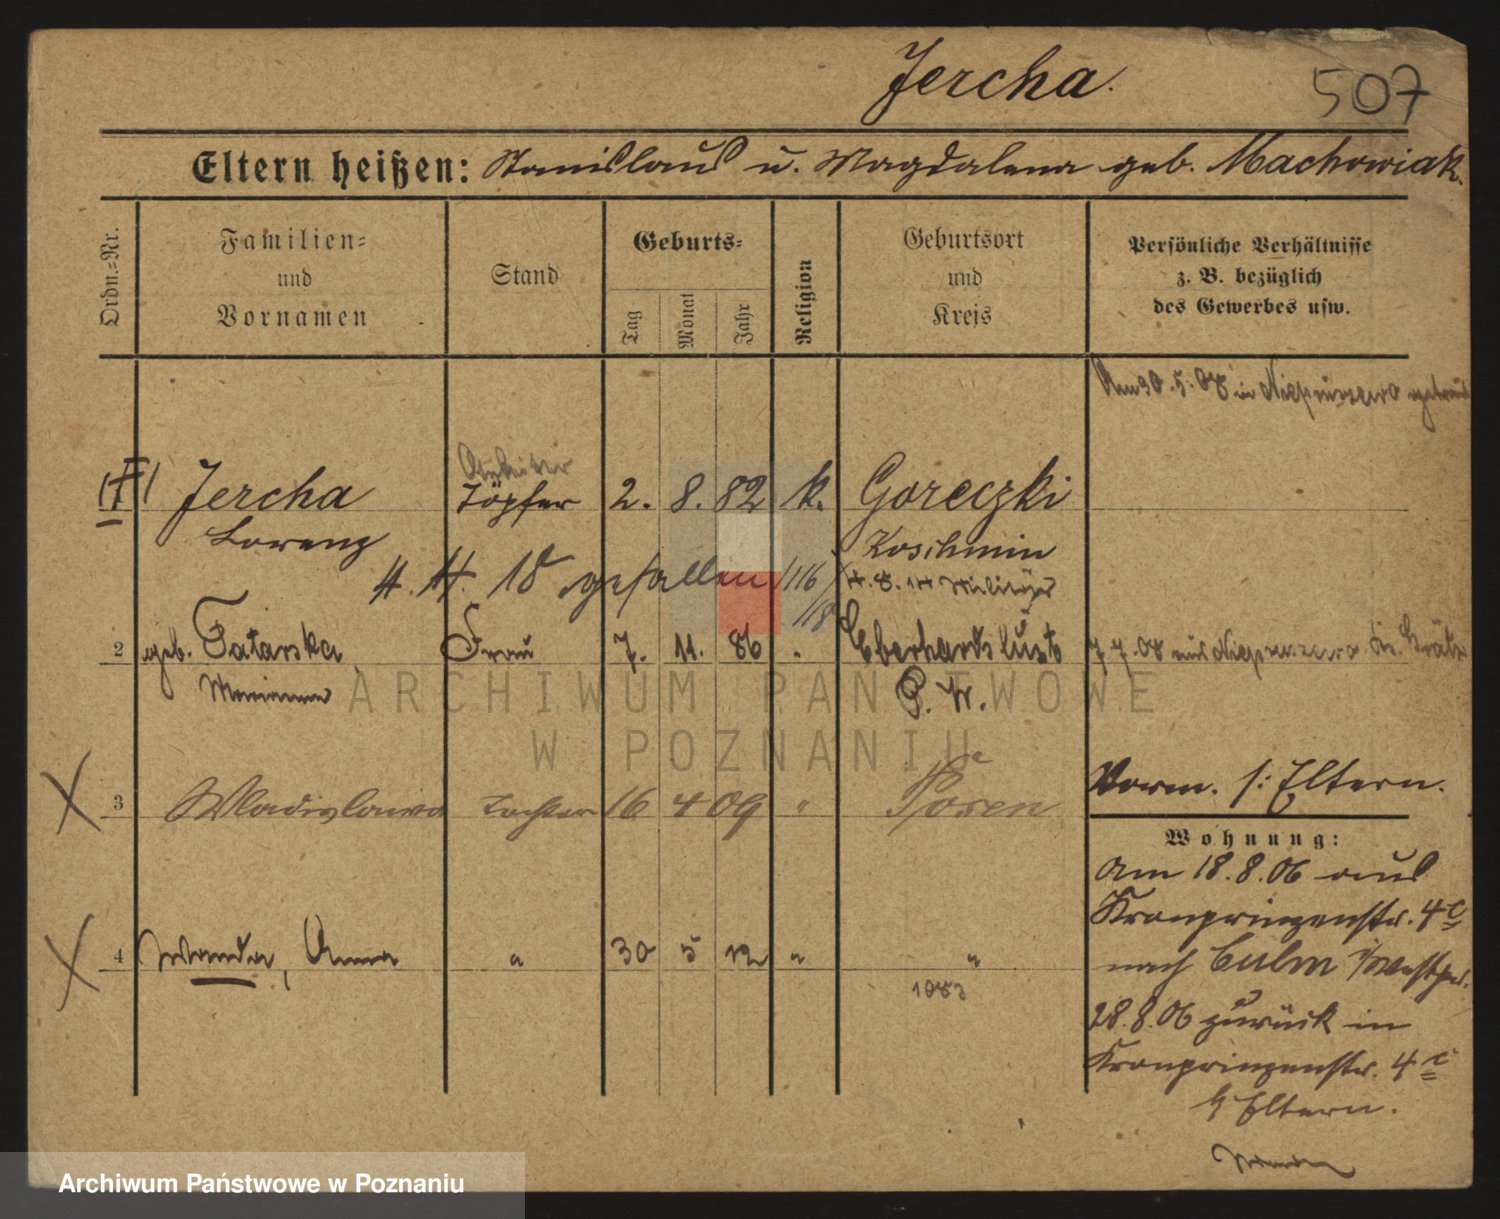 Jercha.
507
Eltern heißen: Stanislaus u. Magdalena geb. Machowiak.
Ordn.=Nr.
Familien=
und
Vornamen
Stand
Geburts=
Tag
Monat
Jahr
Religion
Geburtsort
und
Kreis
Persönliche Verhältnisse
z. B. bezüglich
des Gewerbes usw.
Am 30.5.08 in getraut
Arbeiter
Jercha Töpfer 2. 8. 82 k. Goreczki
Lorenz Koschmin
4. 4. 18 gefallen 116/18
4.8.14 Militär
2 geb. Tatarska Frau 7. 11. 86 . Eberhardslust
Marianna P. W.
7.7.08 aus Kr. Grätz
3 Wladislawa Tochter 16 4 09 " Posen
Vorm. s: Eltern.
Wohnung:
am 18.8.06 aus
Kronprinzenstr. 4c
nach Culm i/Westpr.
28.8.06 zurück in
Kronprinzenstr. 4c
b/ Eltern.
4 Wanda, Anna " 30 5 12 " "
1083
ARCHIWUM PAŃSTWOWE
W POZNANIU
Archiwum Państwowe w Poznaniu